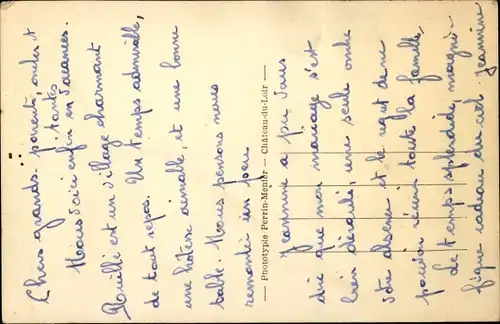 Chers grands-parents, oncles et
tantes
Nous voici enfin en vacances.
Ruillé est un village charmant
de tout repos. Un temps admirable,
une hôtesse aimable, et une bonne
table. Nous pensons nous
remonter un peu
Phototypie Perrin-Menier — Château-du-Loir
Jeannine a pu vous
dire que mon mariage s'est
bien déroulé, une seule ombre
votre absence et le regret de ne
pouvoir réunir toute la famille,
Le temps splendide, magni-
fique cadeau du ciel. Jeannine